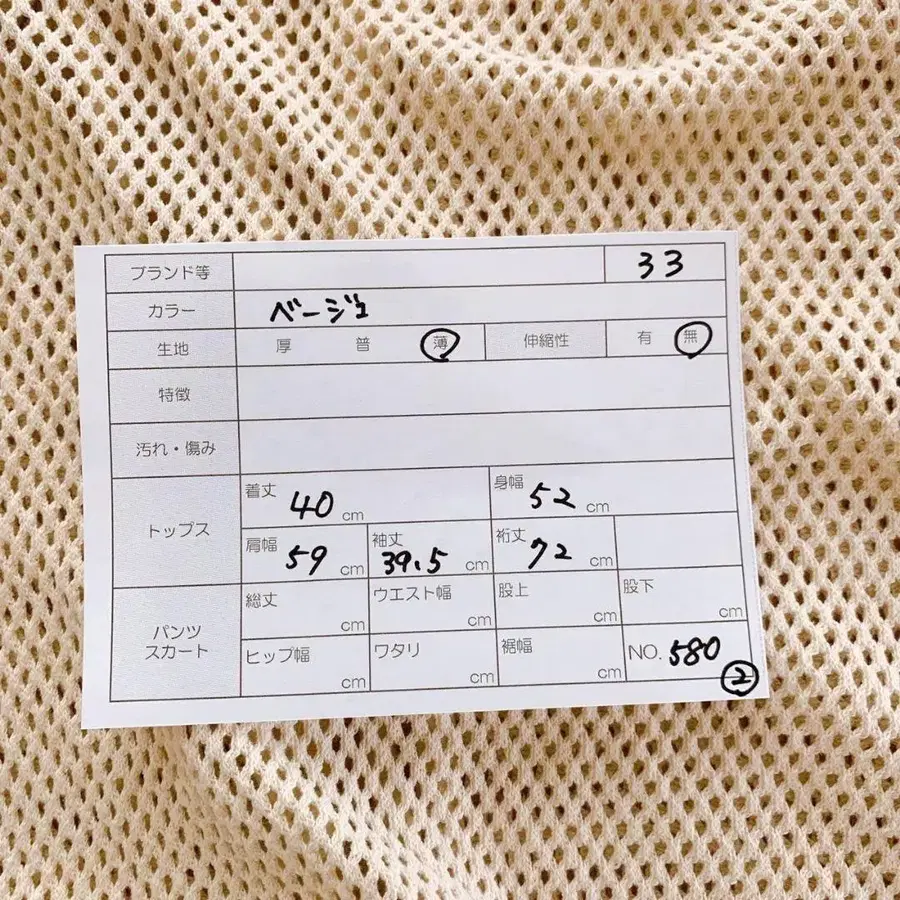 ブランド等 33
カラー ベージュ
生地 厚 普 薄 伸縮性 有 無
特徴
汚れ・傷み
トップス
着丈 40 cm 身幅 52 cm
肩幅 59 cm 袖丈 39.5 cm 裄丈 72 cm
パンツ
スカート
総丈 cm ウエスト幅 cm 股上 cm 股下 cm
ヒップ幅 cm ワタリ cm 裾幅 cm NO. 580
②